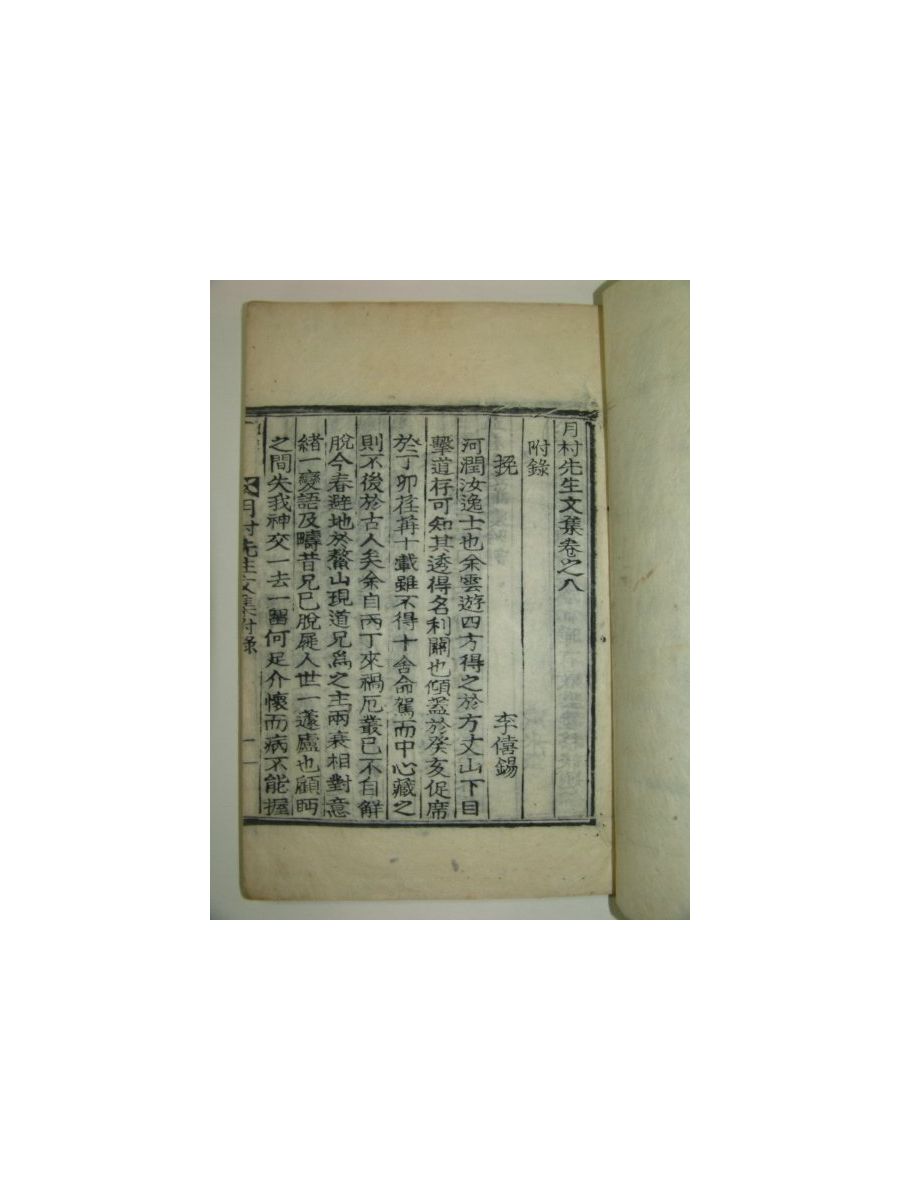 月村先生文集卷之八
附錄
挽 李僖錫
河潤汝逸士也余雲遊四方得之於方丈山下目
擊道存可知其透得名利關也傾蓋於癸亥促席
於丁卯荏苒十載雖不得十舍命駕而中心藏之
則不後於古人矣余自丙丁來禍厄叢已不自解
脫今春避地於鰲山現道兄爲之主兩衰相對意
緖一變語及疇昔兄已脫屣人世一蘧廬也顧眄
之間失我神交一去一留何足介懷而病不能握
月村先生文集附錄
一